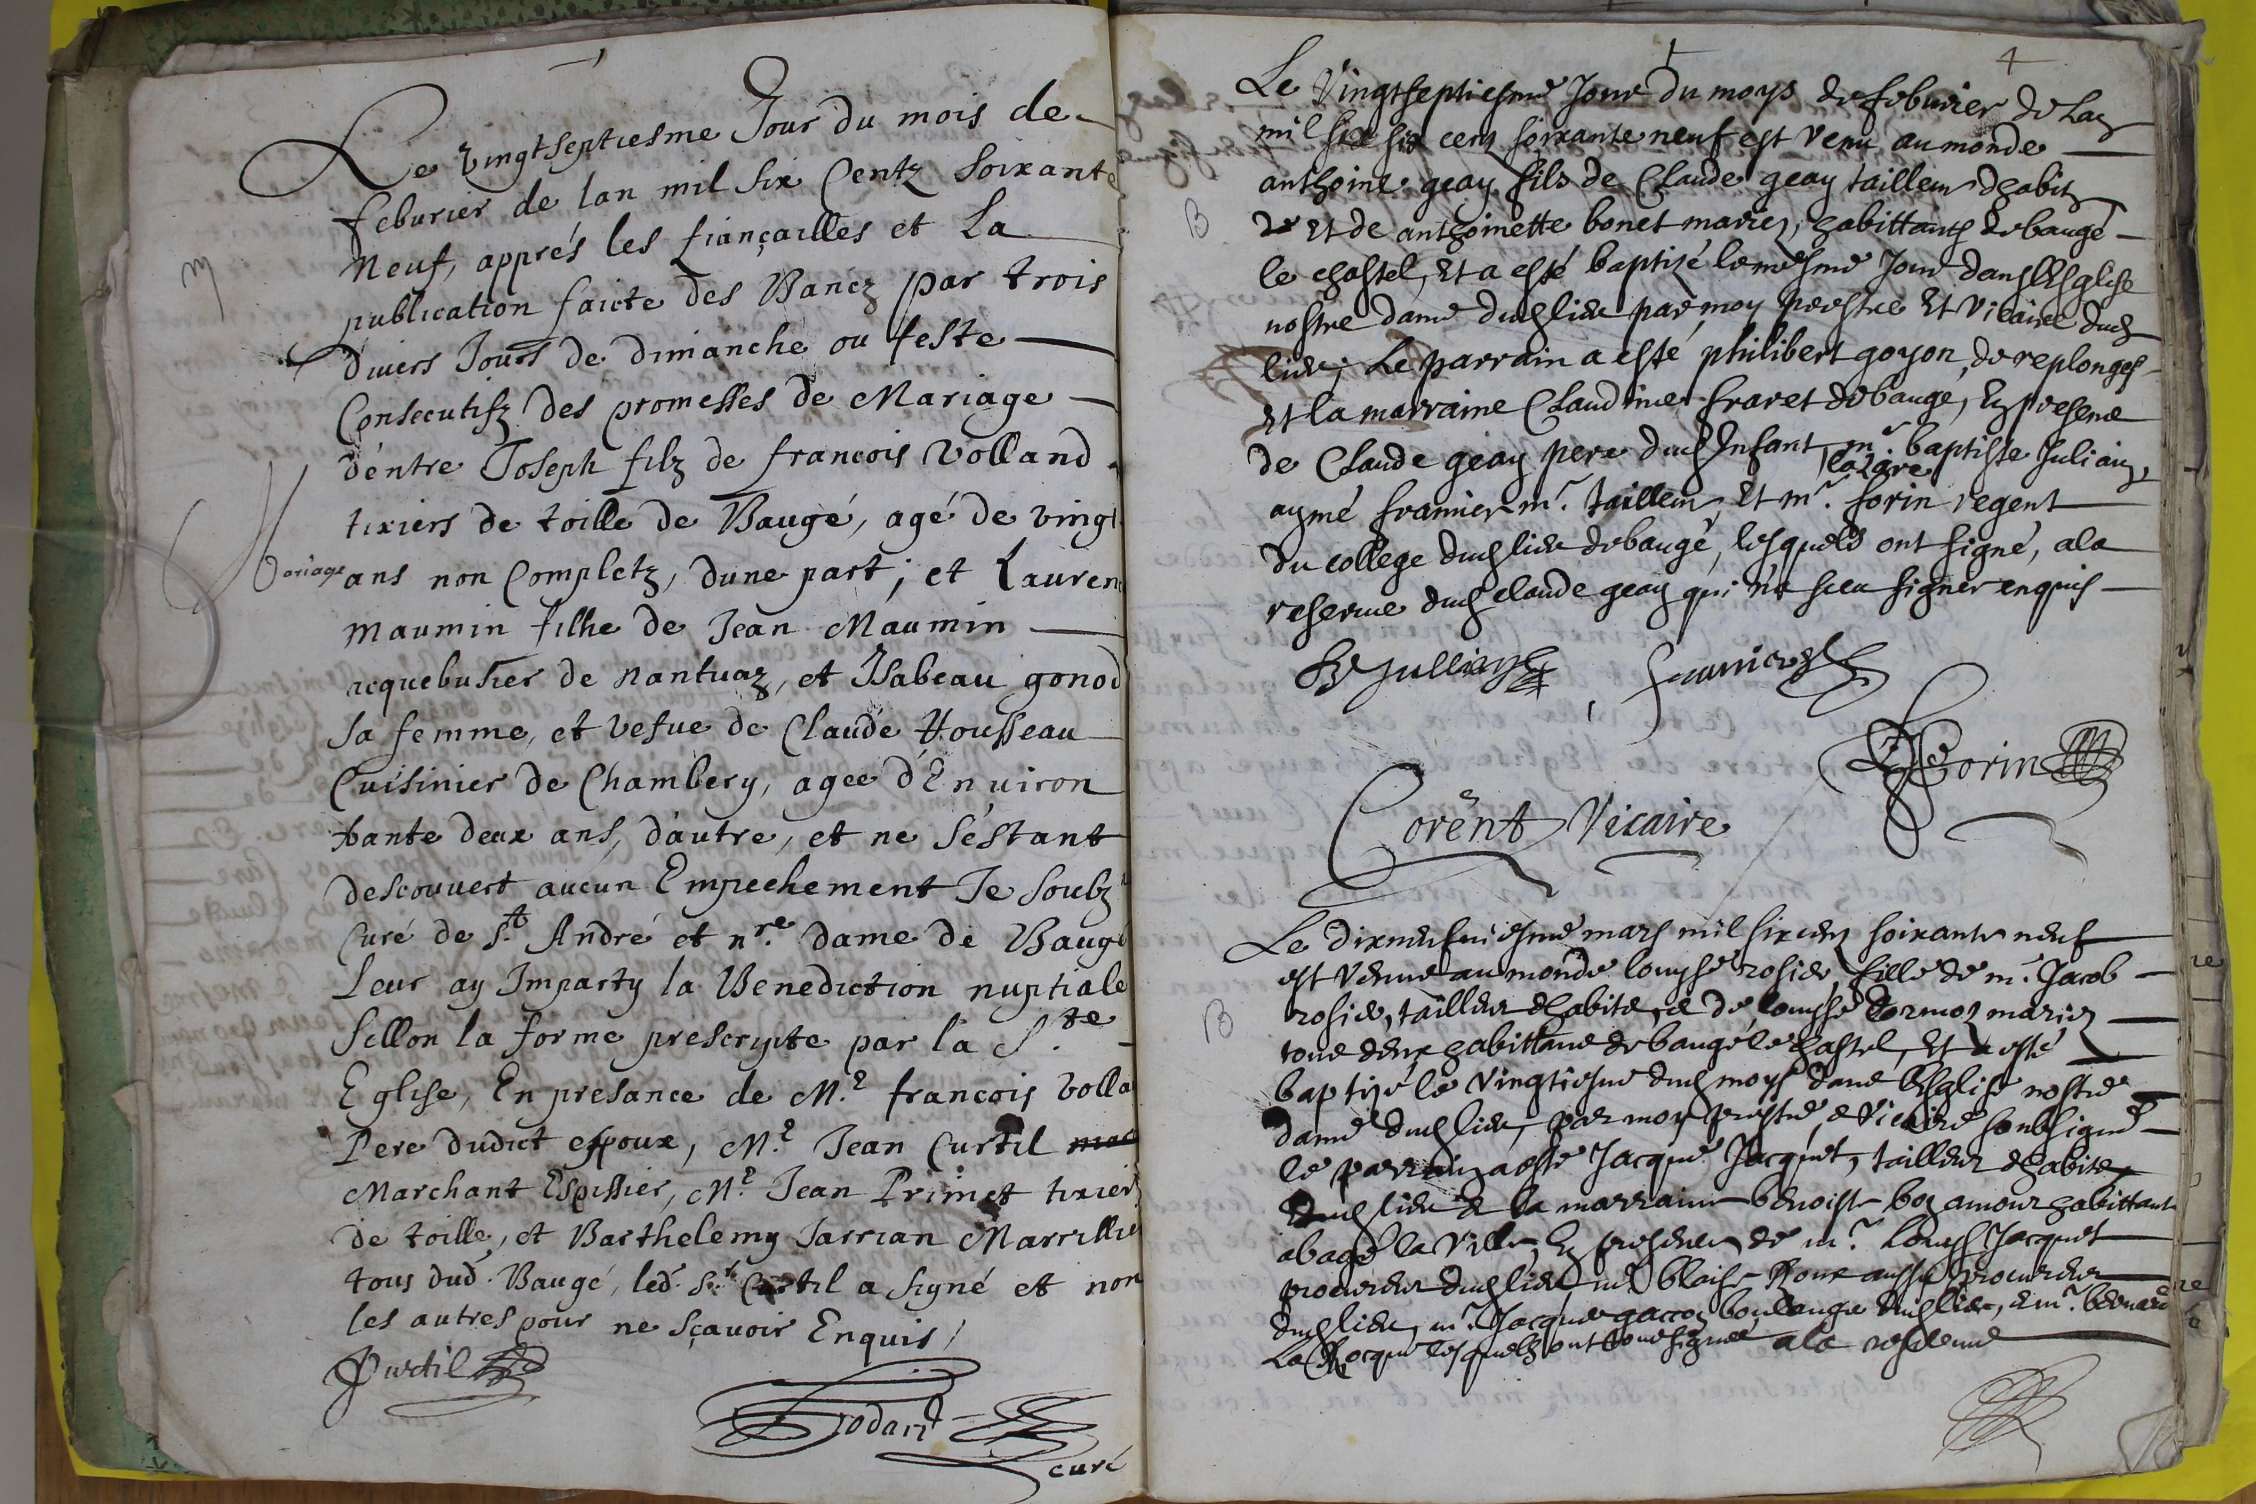 Le vingtseptiesme Jour du mois de
feburier de lan mil six Centz soixante
Neuf, apprés les fiançailles et La
publication faicte des Bancz par trois
divers Jours de dimanche ou feste
Consecutifz des promesses de Mariage
d'entre Joseph filz de francois Volland
tixiers de toille de Baugé, agé de vingt
Mariage
ans non Completz, dune part; et Lauren
Maumin filhe de Jean Maumin
arquebusier de Nantuaz, et Isabeau gonod
sa femme, et vefue de Claude Housseau
Cuisinier de Chambery, agee d'Enuiron
trante deux ans, dautre, et ne s'estant
descouvert aucun Empechement Je soubz
Curé de St. André et nre. dame de Baugé
Leur ay Imparty la Benediction nuptiale
sellon la forme prescripte par la Ste
Eglise, En presance de Me. francois Volla
Pere dudict espoux, Me. Jean Curtil
Marchant Espissier, Me. Jean Primet tixier
de toille, et Barthelemy Jarrian Marrillie
tous dud. Baugé, led. Sr. Curtil a signé et non
les autres pour ne sçavoir Enquis
Curtil
Bodart
curé
4
Le vingtseptiesme Jour du moys de febvrier de Lan
mil six six cens soixante neuf est venu au monde
B
anthoine geay fils de Claude geay tailleur dhabit
de et de anthoinette bonet mariez, habittants de baugé
le chastel, Et a esté baptizé le mesme Jour dans lEsglise
nostre dame dud lieu par moy prestre Et Vicaire dud
lieu, Le parrain a esté philibert goyon, de replonges
Et la marraine Claudine fravet de baugé, En presence
de Claude geay pere dud Enfant, mr. baptiste Julian
aymé frannier mr. tailleur, Et mr. lazare forin regent
du college dud lieu de baugé, lesquels ont signé, a la
reserve dud claude geay qui n'a sceu signer enquis
B Jullian
L forin
Corent Vicaire
Le dixneufuiesme mars mil six cens soixante neuf
est venue au monde louyse rosier fille de mr. Jacob
B
rosier, tailleur dhabits, e de louyse Cormoz mariez
tous deux habittans de baugé le chastel, Et a esté
baptizé le vingtiesme dud moys dans lEsglise nostre
dame dud lieu, par moy prestre e Vicaire soubsigné
le parrain a esté Jacque Jacquet, tailleur dhabits
dud lieu e la marraine benoiste bon amour habittant
a bagé la Ville, En presence de mr. Louys Jacquet
procureur dud lieu, mr. blaise Roux aussy procureur
dud lieu, mr. Jacque gaccon boulangie dud lieu, e mr. bernard
La Rocque lesquels ont tous signee a la reserve